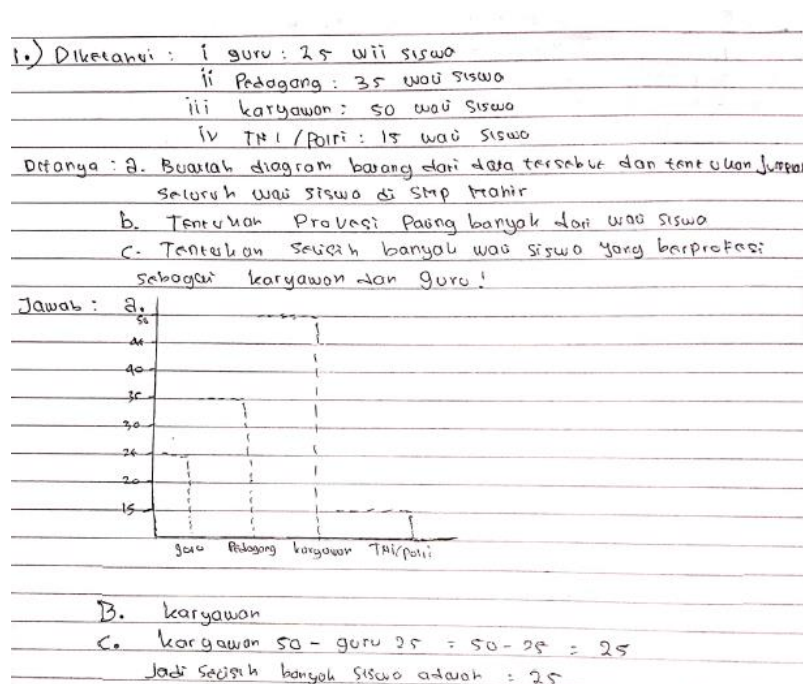 1.) Diketahui : i guru : 25 wii siswa
ii Pedagang : 35 wali siswa
iii karyawan : 50 wali siswa
iv TNI/Polri : 15 wali siswa
Ditanya : a. Buatlah diagram batang dari data tersebut dan tentukan Jumlah
seluruh wali siswa di SMP Mahir
b. Tentukan Provesi Paling banyak dari wali siswa
c. Tentukan selisih banyak wali siswa yang berprofesi
sebagai karyawan dan guru!
Jawab : a.
50
45
40
35
30
25
20
15
guru Pedagang karyawan TNI/polri
B. karyawan
C. kargawan 50 - guru 25 = 50 - 25 = 25
Jadi selisih banyak siswa adalah = 25